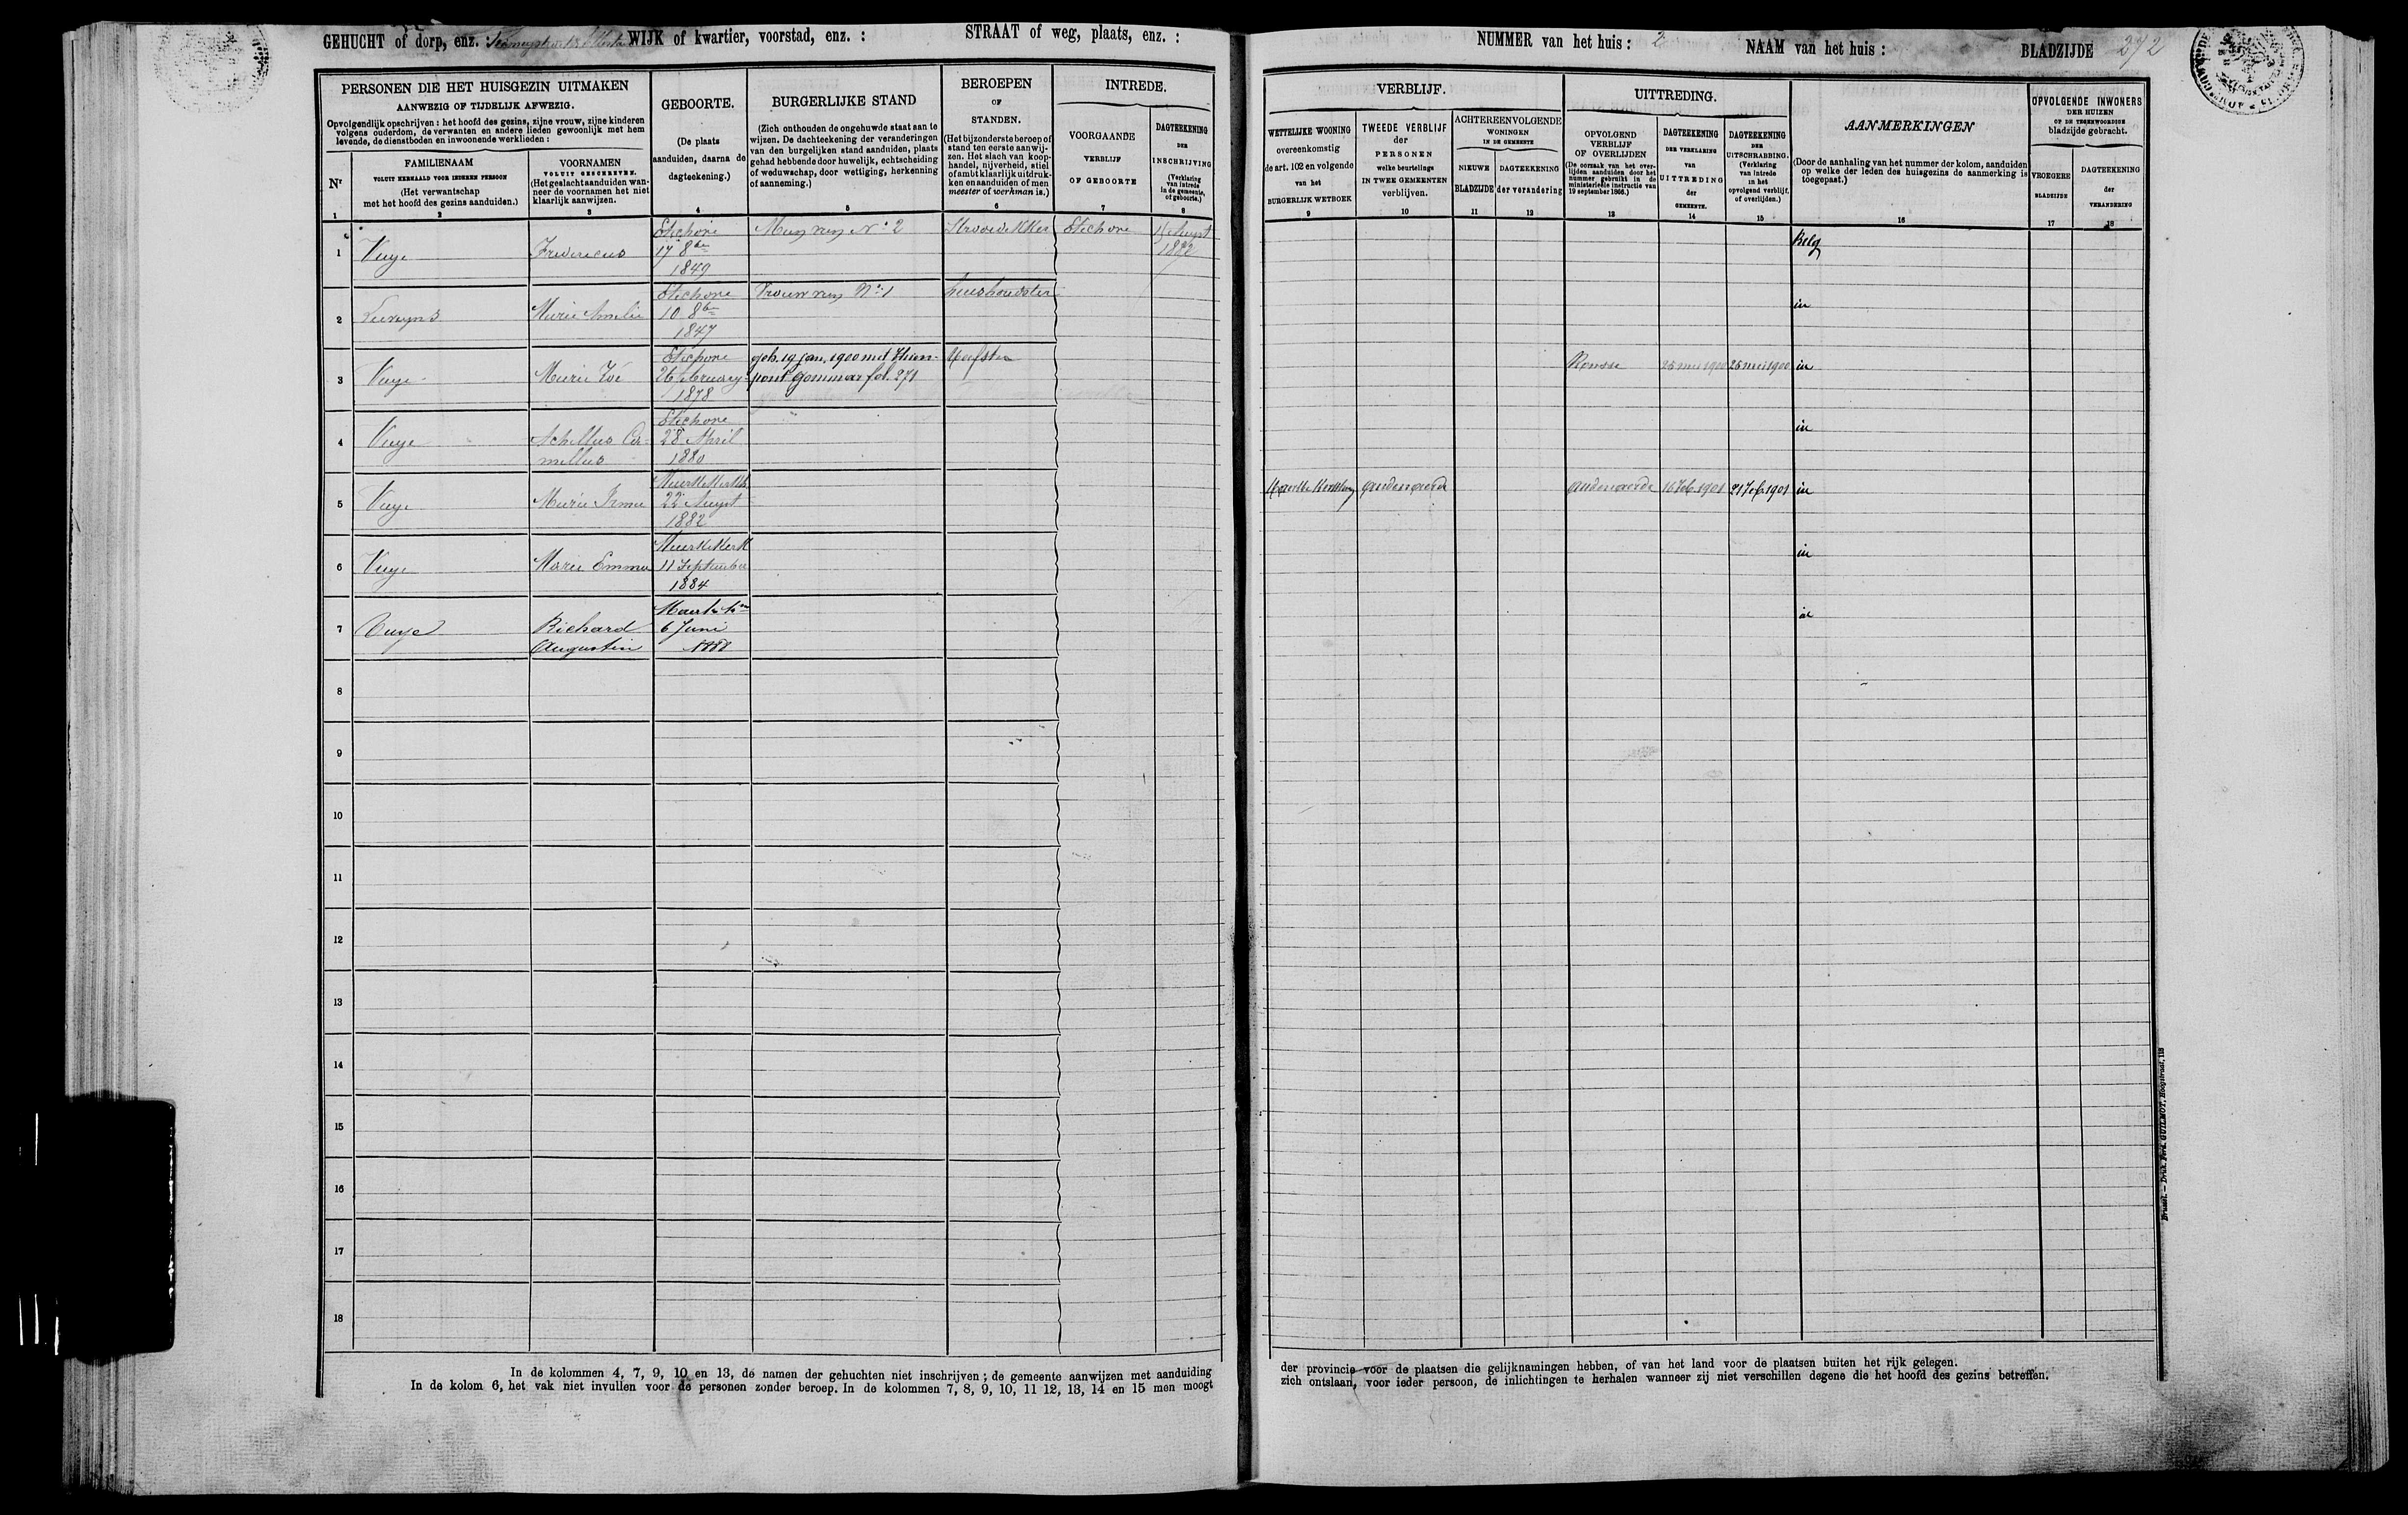 GEHUCHT of dorp, enz. :
WIJK of kwartier, voorstad, enz. :
STRAAT of weg, plaats, enz. :
NUMMER van het huis : 2
NAAM van het huis :
BLADZIJDE 272
PERSONEN DIE HET HUISGEZIN UITMAKEN
AANWEZIG OF TIJDELIJK AFWEZIG.
Opvolgendlijk opschrijven : het hoofd des gezins, zijne vrouw, zijne kinderen
volgens ouderdom, de verwanten en andere lieden gewoonlijk met hem
levende, de dienstboden en inwoonende werklieden :
Nr
1
FAMILIENAAM
VOLUIT HERHAALD VOOR IEDEREN PERSOON
(Het verwantschap
met het hoofd des gezins aanduiden.)
2
VOORNAMEN
VOLUIT GESCHREVEN.
(Het geslacht aanduiden wan-
neer de voornamen het niet
klaarlijk aanwijzen.
3
GEBOORTE.
(De plaats
aanduiden, daarna de
dagteekening.)
4
BURGERLIJKE STAND
(Zich onthouden de ongehuwde staat aan te
wijzen. De dachteekening der veranderingen
van den burgelijken stand aanduiden, plaats
gehad hebbende door huwelijk, echtscheiding
of weduwschap, door wettiging, herkenning
of aanneming.)
5
BEROEPEN
OF
STANDEN.
(Het bijzonderste beroep of
stand ten eerste aanwij-
zen. Het slach van koop-
handel, nijverheid, stiel
of ambt klaarlijk uitdruk-
ken en aanduiden of men
meester of werkman is.)
6
INTREDE.
VOORGAANDE
VERBLIJF
OF GEBOORTE
7
DAGTEEKENING
DER
INSCHRIJVING
(Verklaring
van intrede
in de gemeente,
of geboorte.)
8
VERBLIJF.
WETTELIJKE WOONING
overeenkomstig
de art. 102 en volgende
van het
BURGERLIJK WETBOEK
9
TWEEDE VERBLIJF
der
PERSONEN
welke beurtelings
IN TWEE GEMEENTEN
verblijven.
10
ACHTEREENVOLGENDE
WONINGEN
IN DE GEMEENTE
NIEUWE
BLADZIJDE
11
DAGTEEKENING
der verandering
12
UITTREDING.
OPVOLGEND
VERBLIJF
OF OVERLIJDEN
(De oorzaak van het over-
lijden aanduiden door het
nummer gebruikt in de
ministerieële instructie van
19 september 1866.)
13
DAGTEEKENING
DER VERKLARING
van
UITTREDING
der
GEMEENTE.
14
DAGTEEKENING
DER
UITSCHRABBING.
(Verklaring
van intrede
in het
opvolgend verblijf,
of overlijden.)
15
AANMERKINGEN
(Door de aanhaling van het nummer der kolom, aanduiden
op welke der leden des huisgezins de aanmerking is
toegepast.)
16
OPVOLGENDE INWONERS
DER HUIZEN
OP DE TEGENWOORDIGE
bladzijde gebracht.
VROEGERE
BLADZIJDE
17
DAGTEEKENING
der
VERANDERING
18
1 Vuye Fredericus Etichove 17 8ber 1849 Man van No 2 Etichove 15 Augst 1882 Belg
2 Marie Amelie Etichove 10 8ber 1847 Vrouw van No 1 huishoudster id
3 Vuye Marie Zoé Etichove 26 february 1878 geh. 19 jan. 1900 met
Gommar fol. 271 Ronsse 25 mei 1900 25 mei 1900 id
4 Vuye Achillus Ca-
millus Etichove 28 April 1880 id
5 Vuye Marie Irma Maerkekerk 22 Augst 1882 Maerke Kerkhem Audenaerde Audenaerde 16 feb. 1901 21 feb. 1901 id
6 Vuye Marie Emma Maerkekerk 11 September 1884 id
7 Vuye Richard
Augustin 6 Juni 1888 id
8
9
10
11
12
13
14
15
16
17
18
In de kolommen 4, 7, 9, 10 en 13, de namen der gehuchten niet inschrijven ; de gemeente aanwijzen met aanduiding
In de kolom 6, het vak niet invullen voor de personen zonder beroep. In de kolommen 7, 8, 9, 10, 11 12, 13, 14 en 15 men moogt
der provincie voor de plaatsen die gelijknamingen hebben, of van het land voor de plaatsen buiten het rijk gelegen.
zich ontslaan, voor ieder persoon, de inlichtingen te herhalen wanneer zij niet verschillen degene die het hoofd des gezins betreffen.
Brussel. — Druk. Ferd. GUILMOT, Hoogstraat, 118